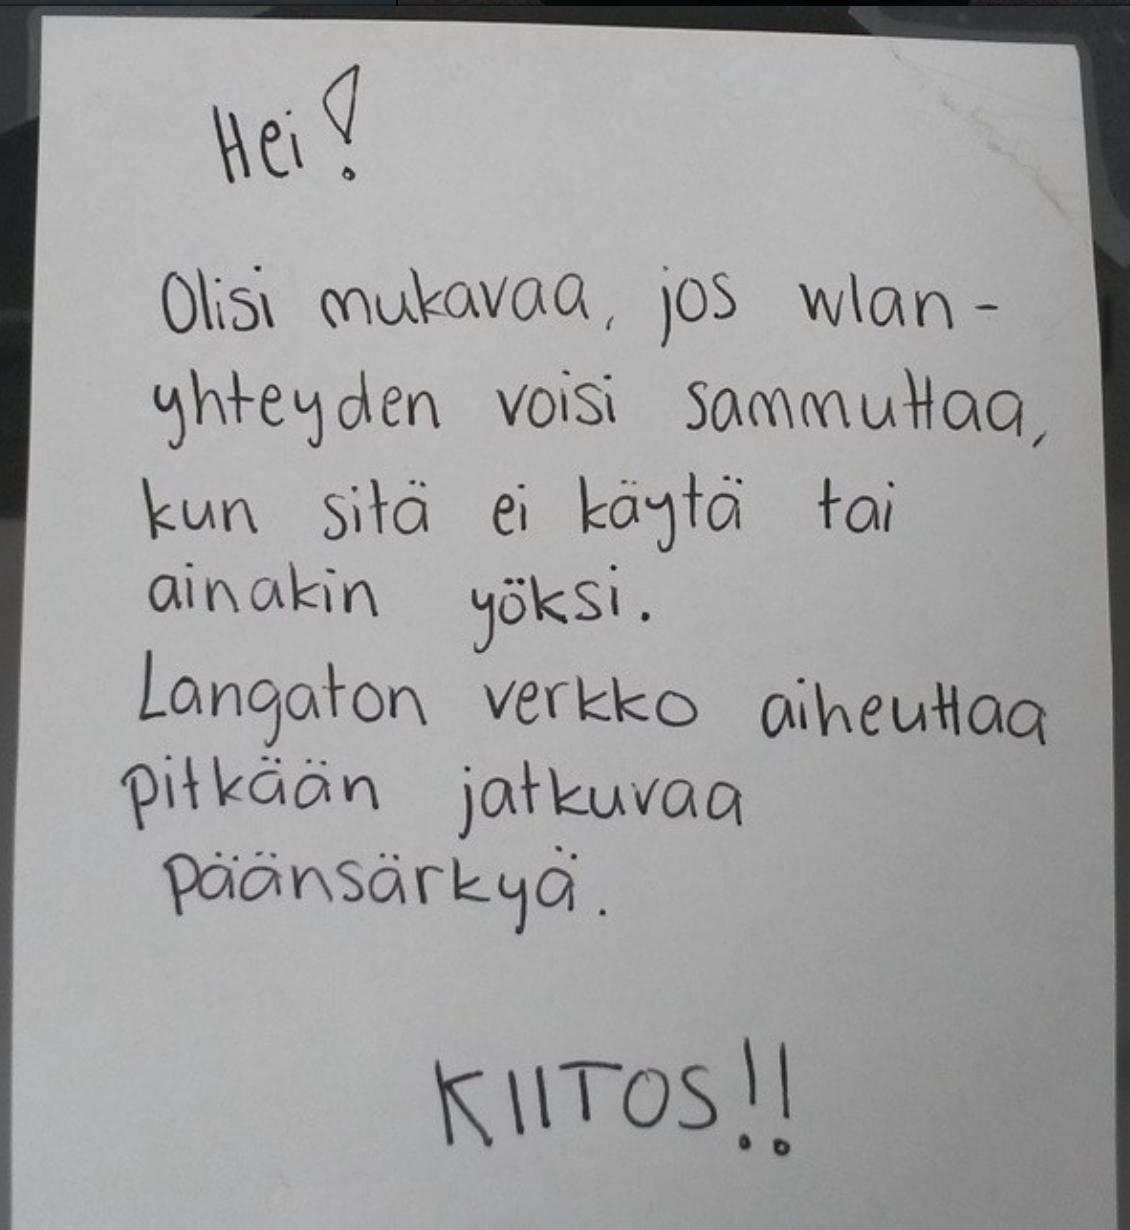 Hei!
Olisi mukavaa, jos wlan-
yhteyden voisi sammuttaa,
kun sitä ei käytä tai
ainakin yöksi.
Langaton verkko aiheuttaa
pitkään jatkuvaa
päänsärkyä.
KIITOS!!